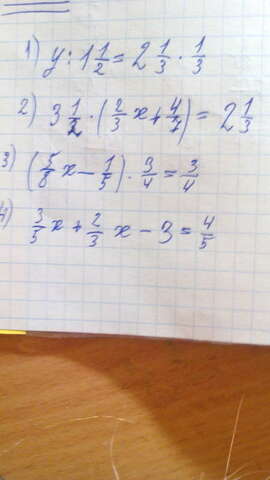 1) y : 1 1/2 = 2 1/3 · 1/3
2) 3 1/2 · (2/3 x + 4/7) = 2 1/3
3) (5/8 x − 1/5) · 3/4 = 3/4
4) 3/5 x + 2/3 x − 3 = 4/5